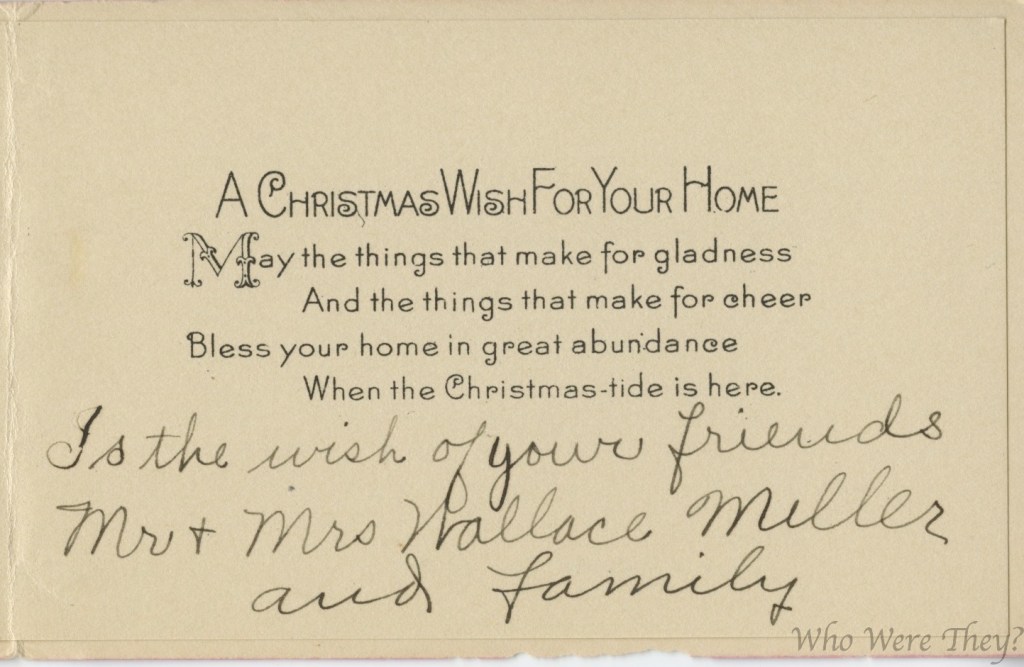 A CHRISTMAS WISH FOR YOUR HOME
May the things that make for gladness
And the things that make for cheer
Bless your home in great abundance
When the Christmas-tide is here.
Is the wish of your friends
Mr + Mrs Wallace Miller
and family
Who Were They?